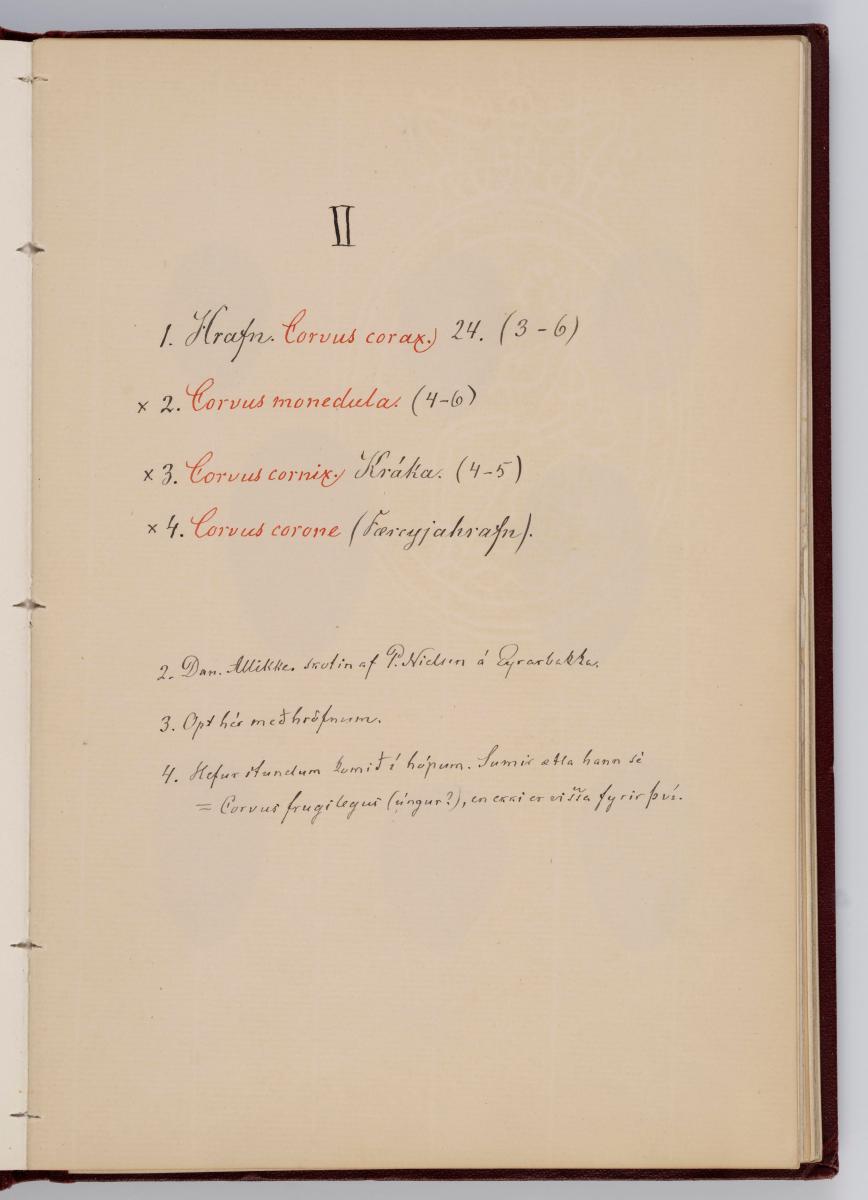 II
1. Hrafn. Corvus corax. 24. (3-6)
× 2. Corvus monedula. (4-6)
× 3. Corvus cornix. Kráka. (4-5)
× 4. Corvus corone (Færeyjahrafn).
2. Dan. Allikke. skotin af P. Nielsen á Eyrarbakka.
3. Opt hér með hröfnum.
4. Hefur stundum komið í hópum. Sumir ætla hann sé
= Corvus frugilegus (úngur?), en ekki er vissa fyrir því.